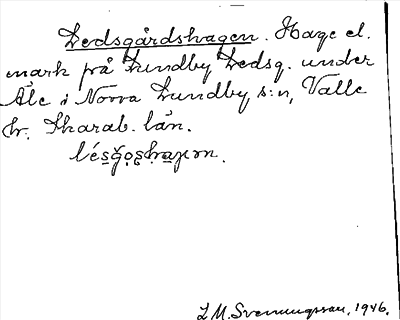 Ledsgårdshagen. Hage el.
mark på Lundby Ledsg. under
Åle i Norra Lundby s:n, Valle
hr. Skarab. län.
L M. Svenungsson, 1946.